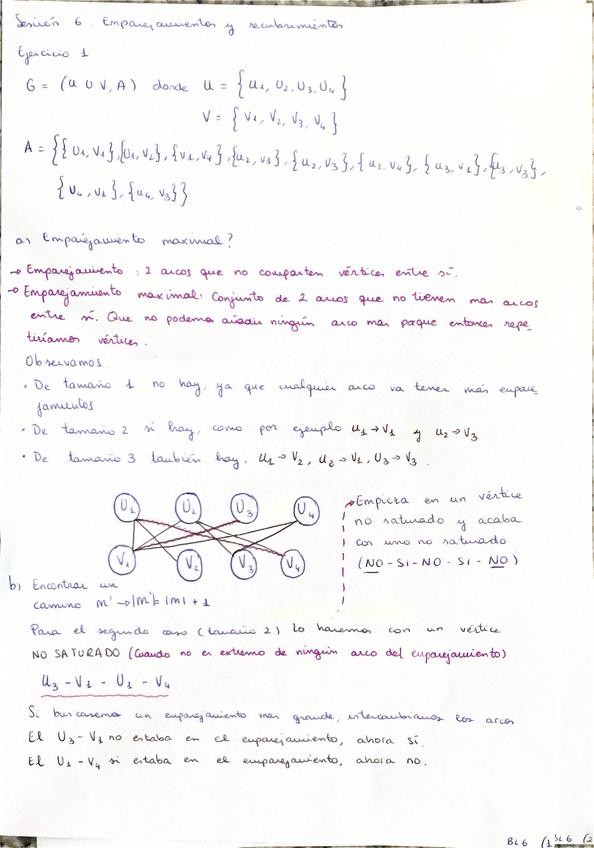 Sesión 6. Emparejamientos y recubrimientos
Ejercicio 1
G = (U ∪ V, A) donde U = {u1, u2, u3, u4}
V = {v1, v2, v3, v4}
A = {{u1, v1}, {u1, v2}, {v1, v4}, {u2, v1}, {u2, v3}, {u2, v4}, {u3, v1}, {u3, v3},
{u4, v1}, {u4, v3}}
a) Emparejamiento maximal?
→ Emparejamiento : 2 arcos que no comparten vértices entre sí.
→ Emparejamiento maximal: Conjunto de 2 arcos que no tienen mas arcos
entre sí. Que no podemos añadir ningún arco mas porque entonces repe-
tiríamos vértices.
Observamos.
· De tamaño 1 no hay, ya que cualquier arco va tener más empare-
jamientos
· De tamaño 2 sí hay, como por ejemplo u1 → v1 y u2 → v3
· De tamaño 3 también hay. u1 → v2, u2 → v1, u3 → v3.
U1 U2 U3 U4
V1 V2 V3 V4
→ Empieza en un vértice
no saturado y acaba
con uno no saturado
(NO - Si - NO - Si - NO)
b) Encontrar un
camino M' → |M'| = |M| + 1
Para el segundo caso (tamaño 2) lo haremos con un vértice
NO SATURADO (Cuando no es extremo de ningún arco del emparejamiento)
u3 - v1 - u1 - v4
Si buscasemos un emparejamiento mas grande, intercambiamos los arcos
El u3 - v1 no estaba en el emparejamiento, ahora sí.
El u1 - v4 si estaba en el emparejamiento, ahora no.
BL6 (1 BL6 (2